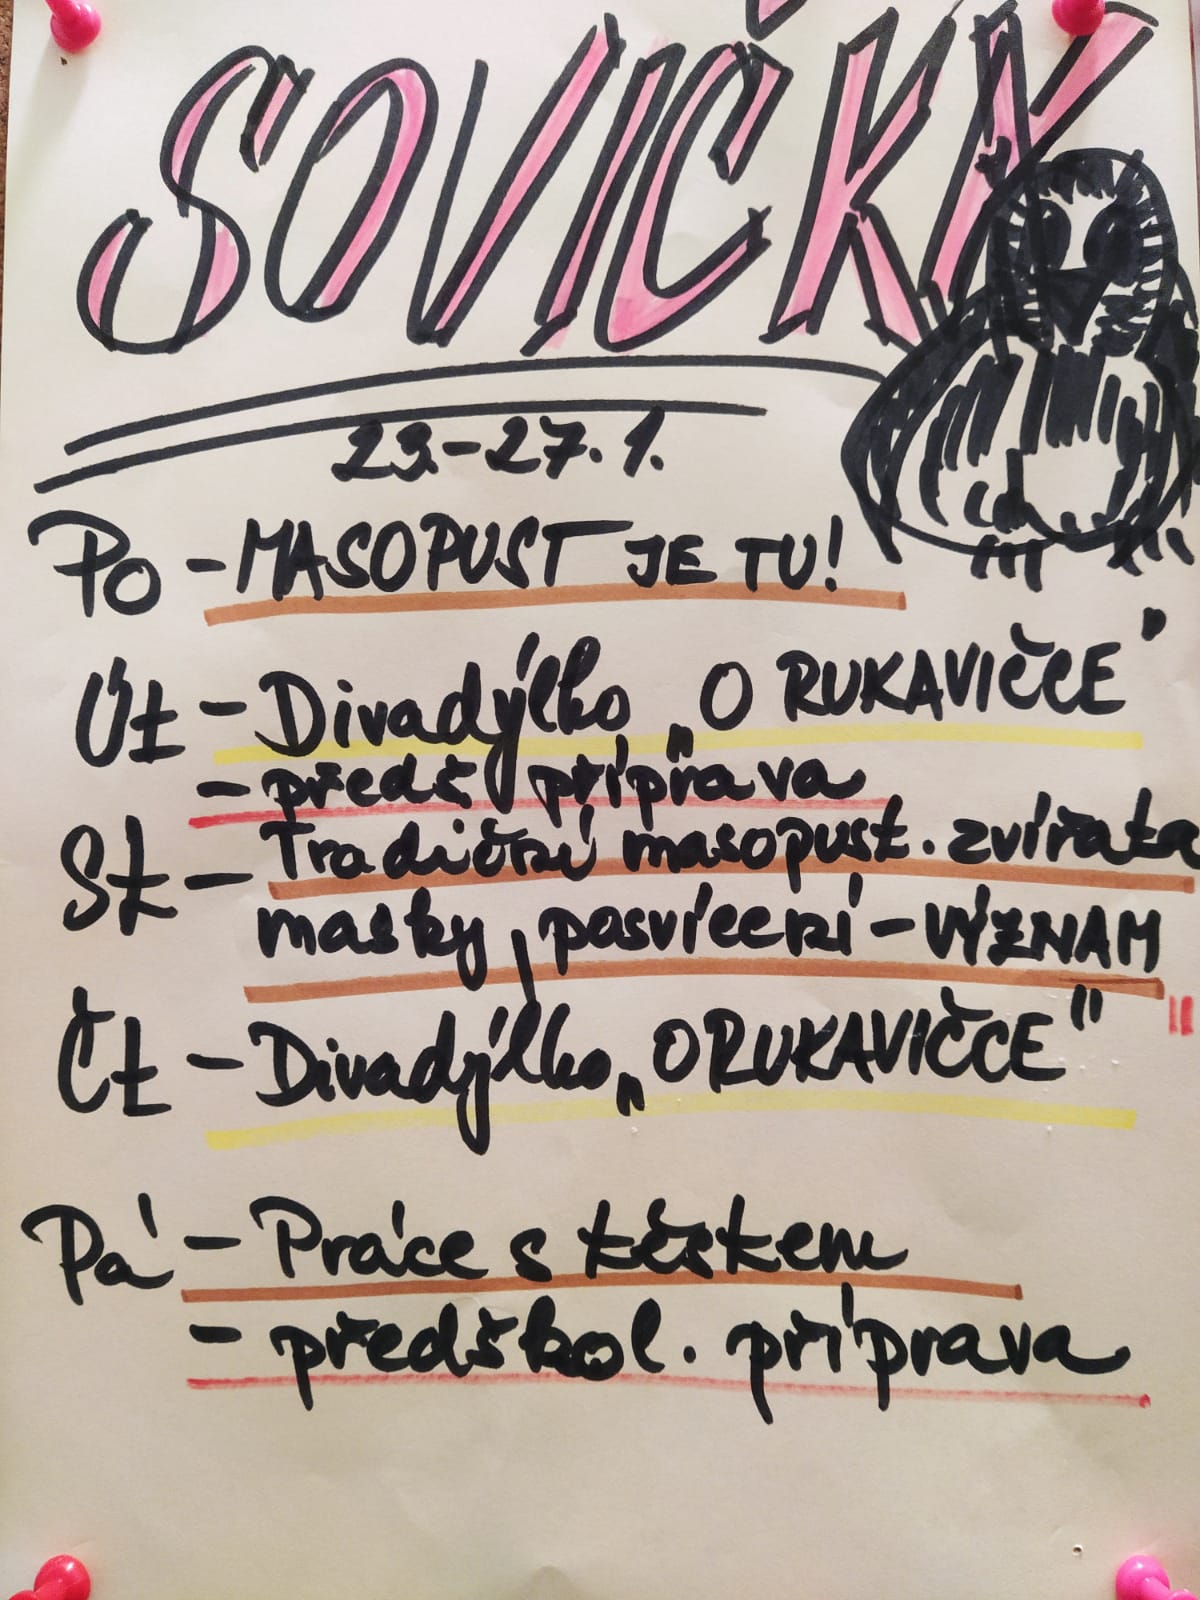 SOVIČKY
23.-27.1.
Po - MASOPUST JE TU!
Út - Divadýlko „O RUKAVIČCE"
- předš příprava
St - Tradiční masopust. zvířata
masky, posvícení - VÝZNAM
Čt - Divadýlko „O RUKAVIČCE"
Pá - Práce s těstem
- předškol. příprava